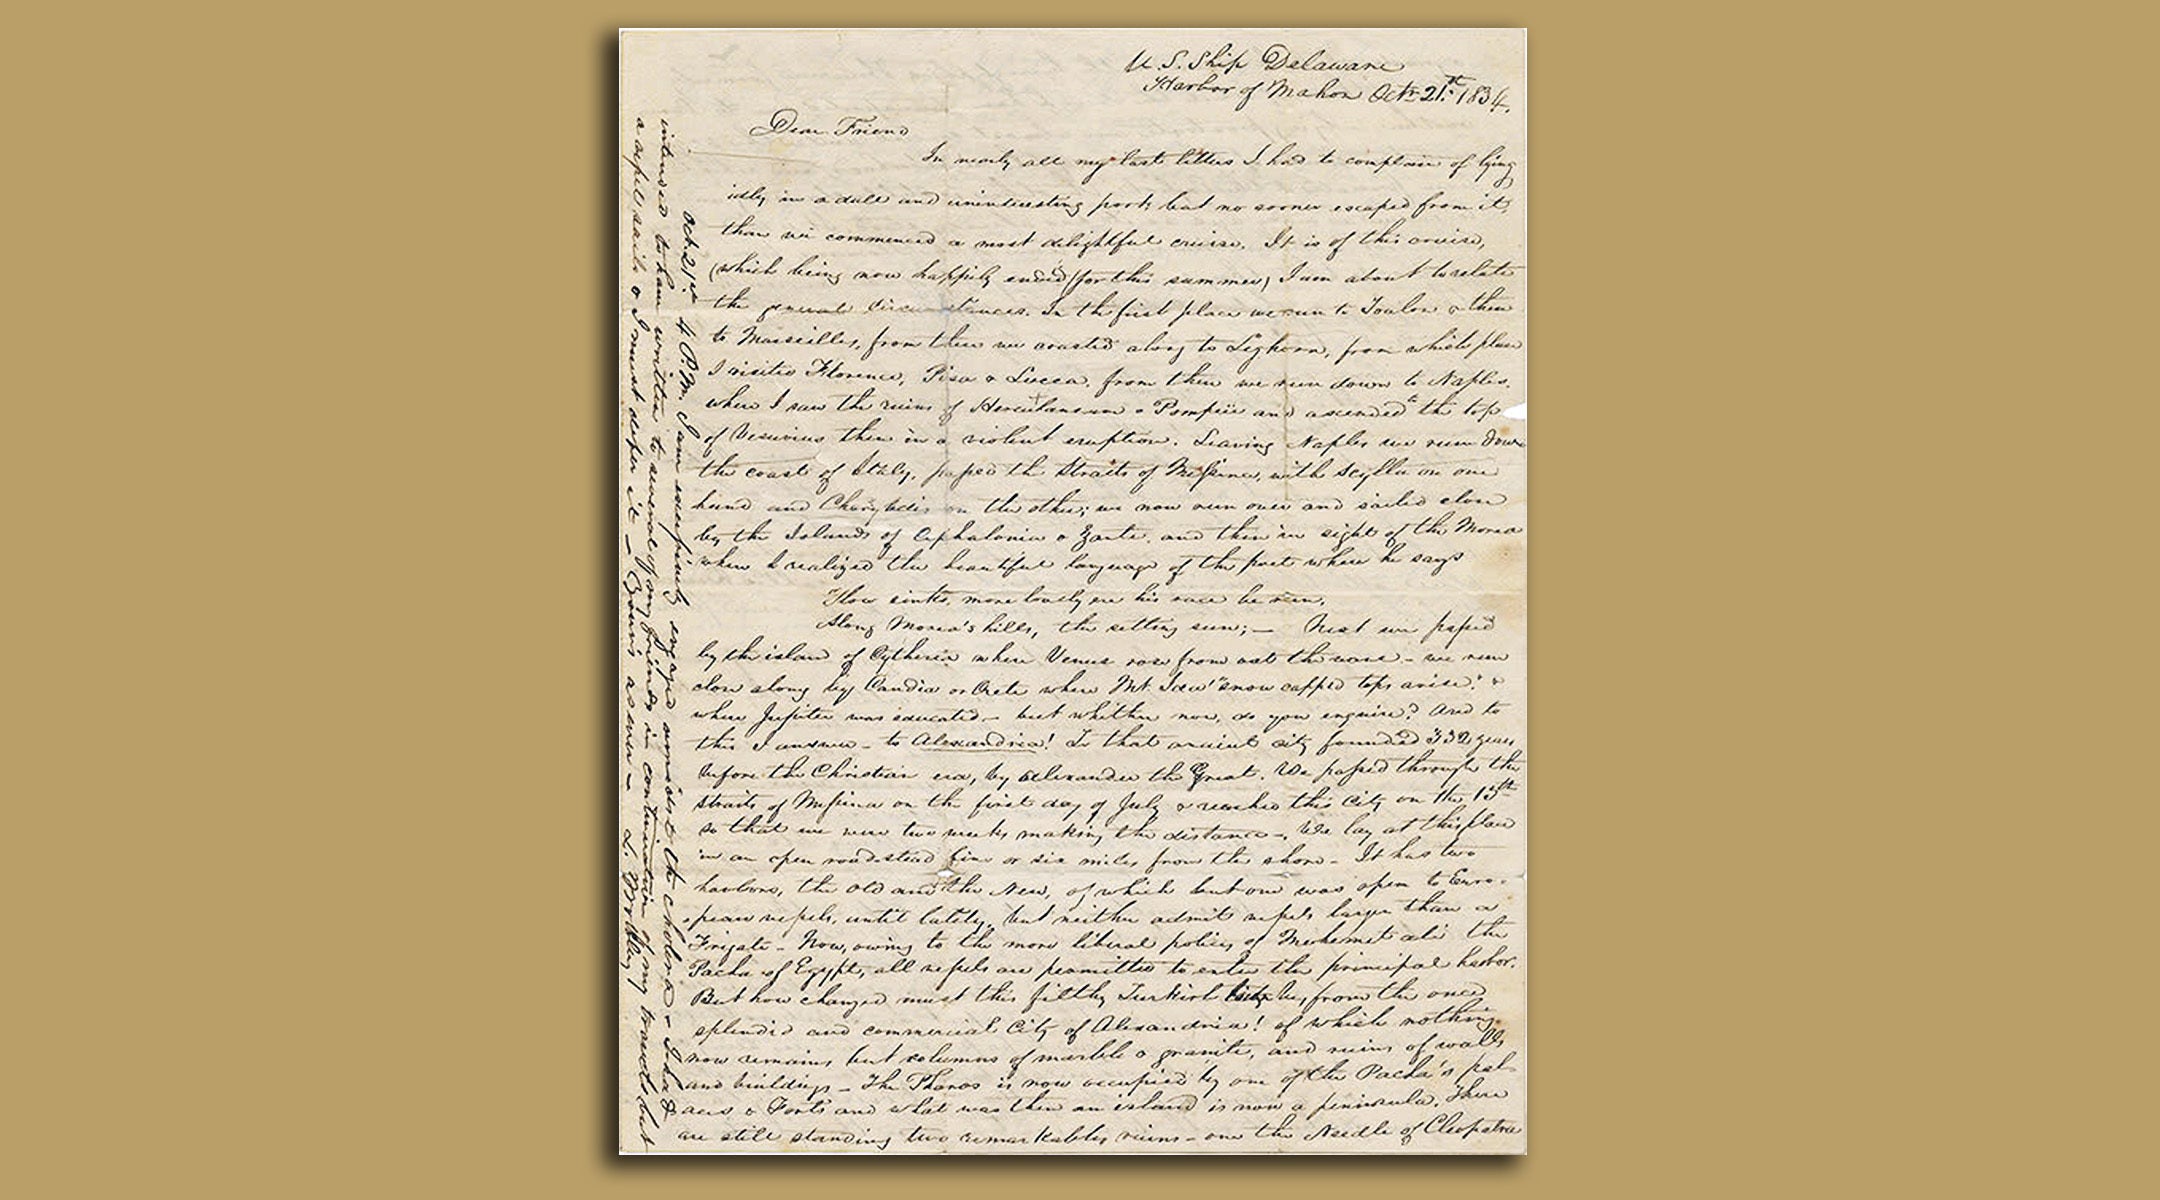 U. S. Ship Delaware
Harbor of Mahon Octr. 21st. 1834.
Dear Friend
In nearly all my last letters I had to complain of lying
idly in a dull and uninteresting port, but no sooner escaped from it,
than we commenced a most delightful cruise. It is of this cruise,
(which being now happily ended (for this summer) I am about to relate
the general circumstances. In the first place we run to Toulon & then
to Marseilles, from there we coasted along to Leghorn, from which place
I visited Florence, Pisa & Lucca, from then we run down to Naples.
where I saw the ruins of Herculaneum & Pompeii and ascended to the top
of Vesuvius then in a violent eruption. Leaving Naples we run down
the coast of Italy, passed the Straits of Messina, with Scylla on one
hand and Charybdis on the other; we now run over and sailed close
by the Islands of Cephalonia & Zante, and then in sight of the Morea
where I realized the beautiful language of the poet where he says
Slow sinks, more lovely ere his race be run,
Along Morea's hills, the setting sun; — Next we passed
by the island of Cytheria where Venus rose from out the wave - we run
close along by Candia or Crete where Mt. Ida's "snow capped tops arise." &
where Jupiter was educated - but whither now, do you enquire? And to
this I answer - to Alexandria! To that ancient city founded 332 years
before the Christian era, by Alexander the Great. We passed through the
Straits of Messina on the first day of July & reached this City on the 15th
so that we were two weeks making the distance -. We lay at this place
in an open roadstead five or six miles from the shore - It has two
harbors, the Old and the New, of which but one was open to Euro-
pean vessels, until lately, but neither admits vessels larger than a
Frigate - Now, owing to the more liberal policy of Mehemet Ali the
Pacha of Egypt, all vessels are permitted to enter the principal harbor.
But how changed must this filthy Turkish City be, from the once
splendid and commercial City of Alexandria! of which nothing
now remains but columns of marble & granite, and ruins of walls
and buildings - The Pharos is now occupied by one of the Pacha's pal-
aces & Forts and what was then an island is now a peninsula. There
are still standing two remarkable ruins - one the Needle of Cleopatra
Oct. 21st. 4 P.M. I am exceedingly engaged amidst the cholera - I had
intended to have written to several of my friends in continuation of my travels but
a vessel sails & I must defer it - Yours as ever -